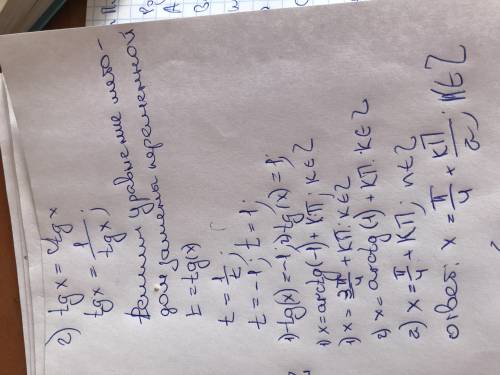 2) tg x = ctg x
tg x = 1/tg x;
Решим уравнение мето-
дом замены переменной
t = tg(x)
t = 1/t;
t = -1; t = 1;
1) tg(x) = -1 2) tg(x) = 1;
1) x = arctg(-1) + КП; K ∈ Z
1) x = 3π/4 + КП; K ∈ Z
2) x = arctg(1) + КП; K ∈ Z
2) x = π/4 + КП; n ∈ Z
ответ: x = π/4 + КП/2; N ∈ Z